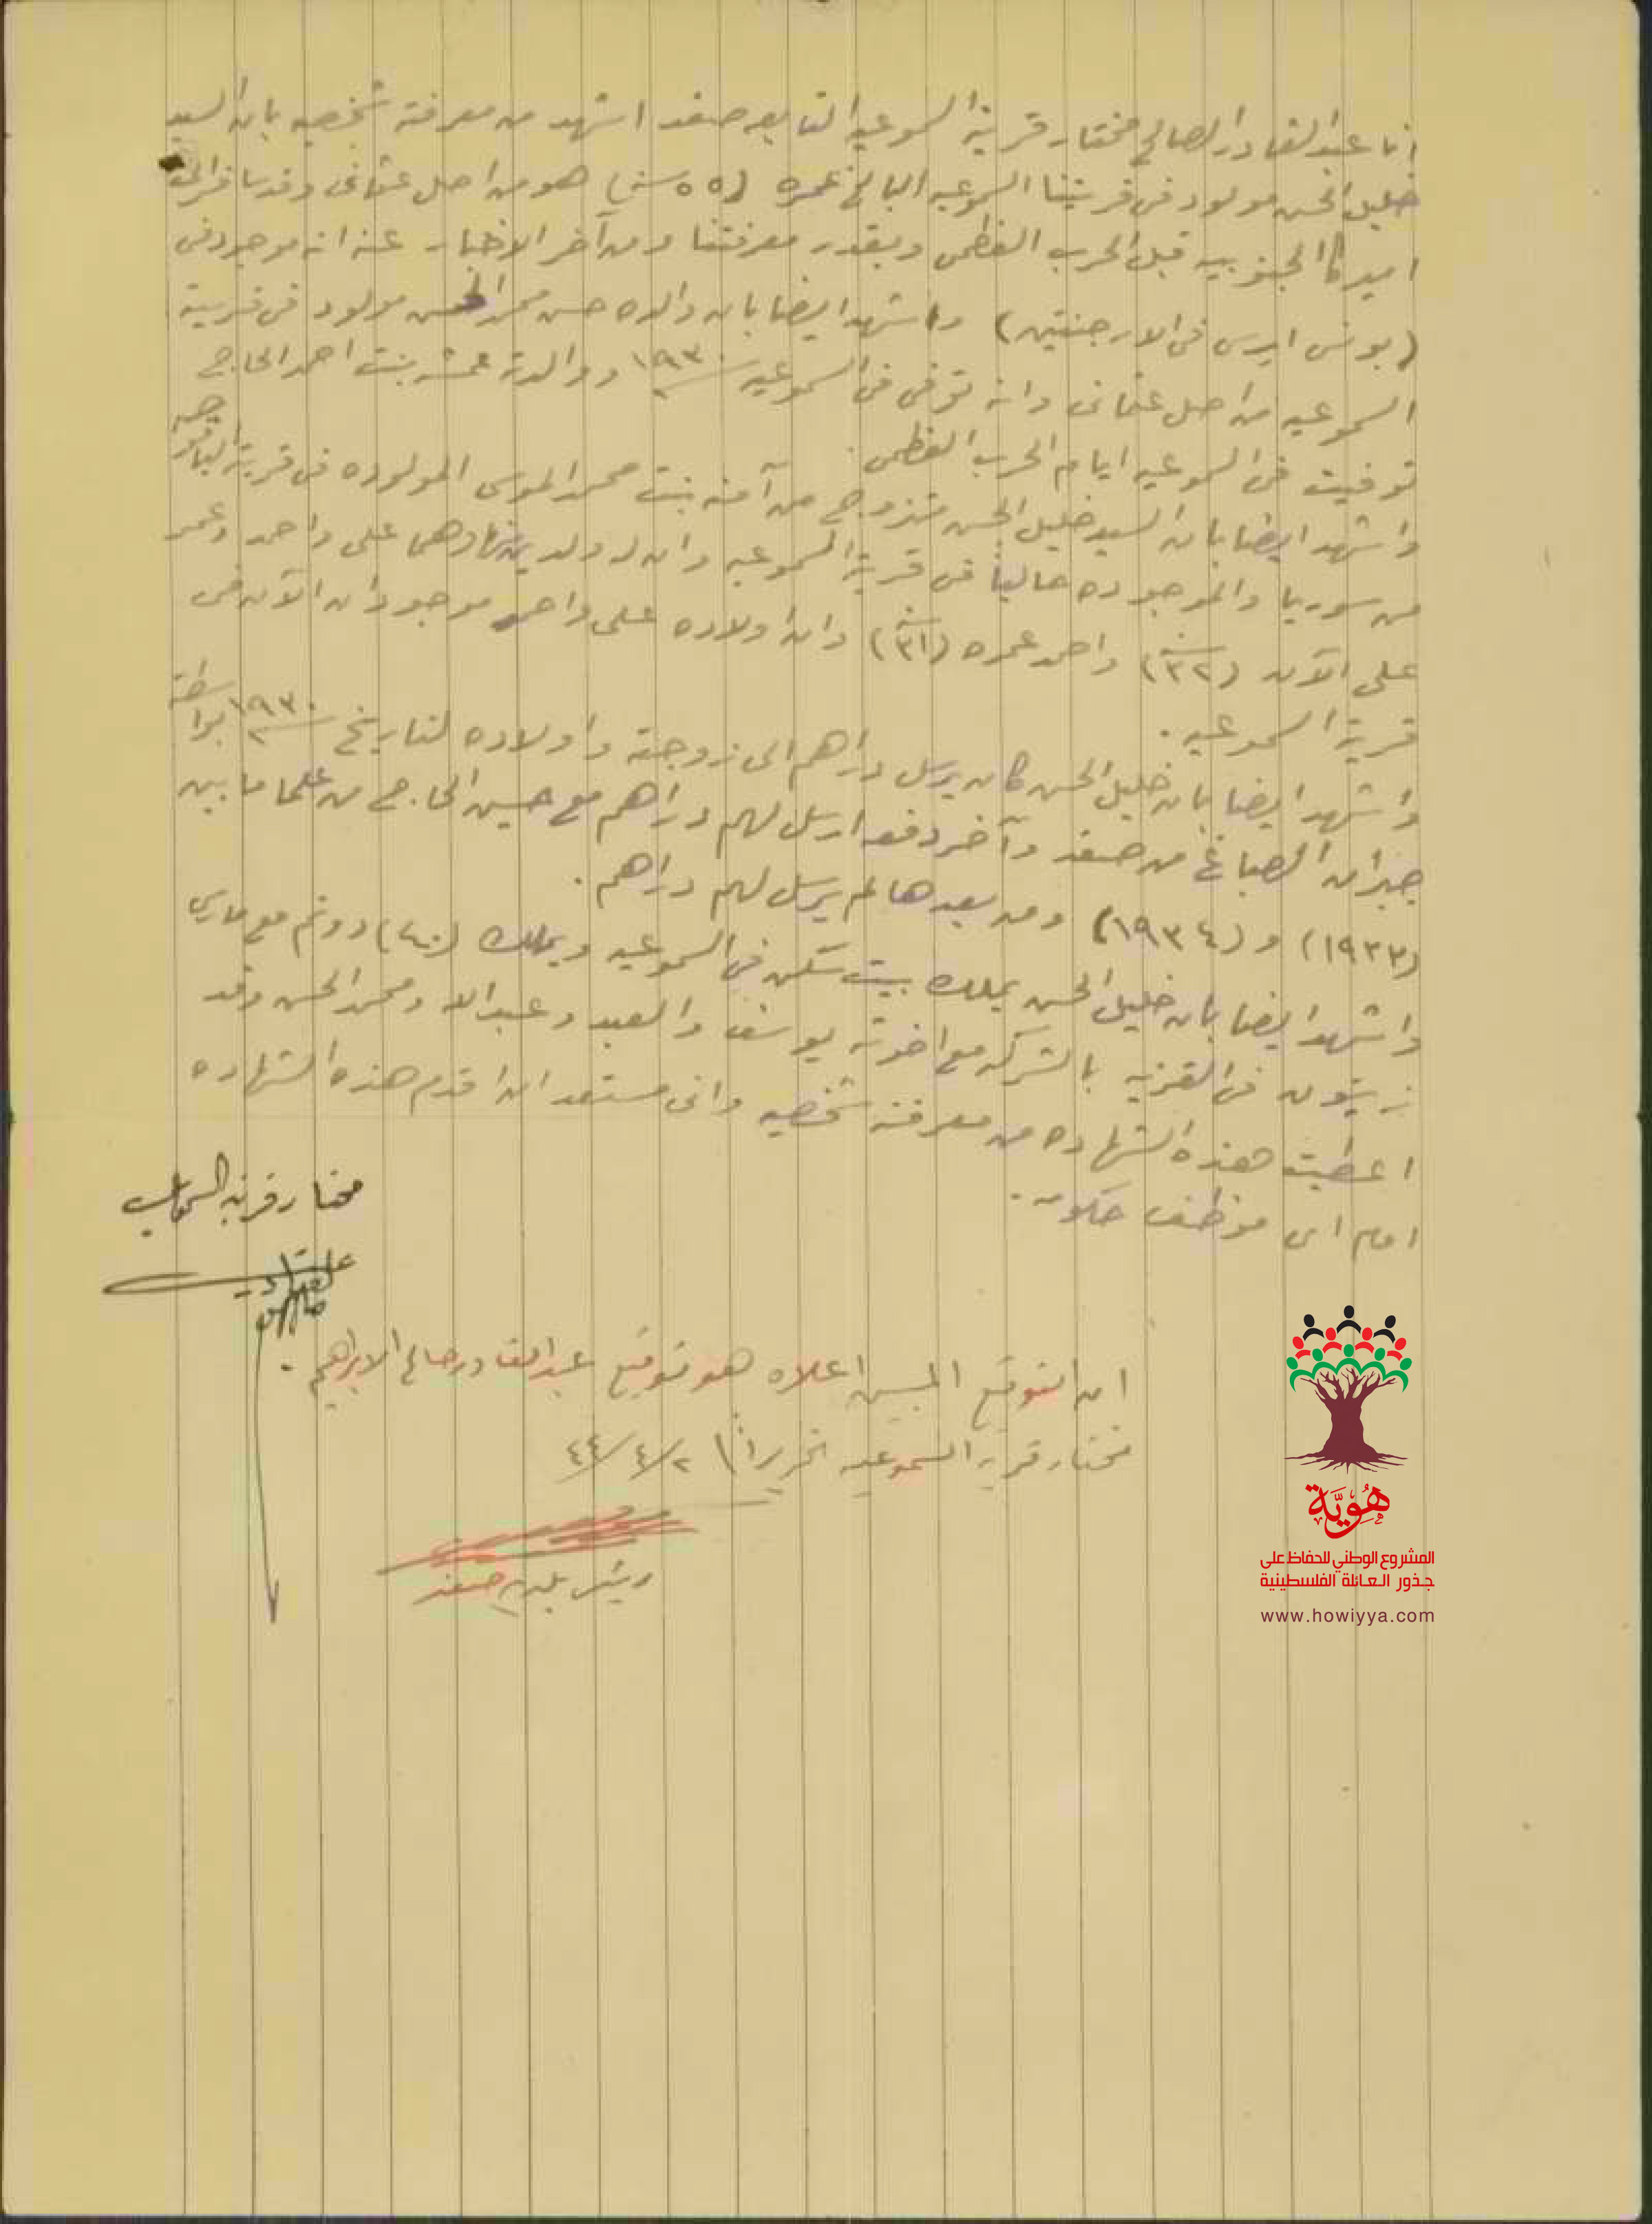 انا عبد القادر الصالح مختار قرية السموعيه التابعه صفد اشهد من معرفة شخصيه بان السيد
خليل الحسن مولود في قريتنا السموعيه البالغ عمره (٥٥ سنه) هو من اصل عثماني وقد سافر الى
اميركا الجنوبيه قبل الحرب العظمى وبقدر معرفتنا ومن آخر الاخبار عنه انه موجود في
(بونس ايرس في الارجنتين) واشهد ايضا بان والده حسن محمد الحسن مولود في قرية
السموعيه من اصل عثماني وانه توفي في السموعيه سنة ١٩٣٠ ووالدته عمشه بنت احمد الحاج
توفيت في السموعيه ايام الحرب العظمى.
واشهد ايضا بان السيد خليل الحسن متزوج من آمنه بنت محمد الموسى المولوده في قرية
من سوريا والموجوده حالياً في قرية السموعيه وان له ولدين منها وهما علي واحمد وعمر
علي الآن (٣٢ سنة) واحمد عمره (٣١ سنة) وان اولاده علي واحمد موجودان الآن في
قرية السموعيه.
واشهد ايضا بان خليل الحسن كان يرسل دراهم الى زوجته واولاده لتاريخ سنة ١٩٣٠ بواسطة
جبران الصباغ من صفد وآخر دفعه ارسل لهم دراهم مع حسين الحاج من علما ما بين
(١٩٣٣) و (١٩٣٤) ومن بعدها لم يرسل لهم دراهم.
واشهد ايضا بان خليل الحسن يملك بيت سكن في السموعيه ويملك (٤٠) دونم مع ماريس
زيتون في القريه بالشركه مع اخوته يوسف والعبد وعبد الله ومحمد الحسن وقد
اعطيت هذه الشهاده من معرفة شخصيه واني مستعد ان اقدم هذه الشهاده
امام اي موظف حكومه.
مختار قرية السموعيه
عبد القادر صالح
ان التوقيع المبين اعلاه هو توقيع عبد القادر صالح الابراهيم.
مختار قرية السموعيه تحريراً ٢/٤/٤٤
رئيس بلدية صفد
هُوِيَّة
المشروع الوطني للحفاظ على
جذور العائلة الفلسطينية
www.howiyya.com